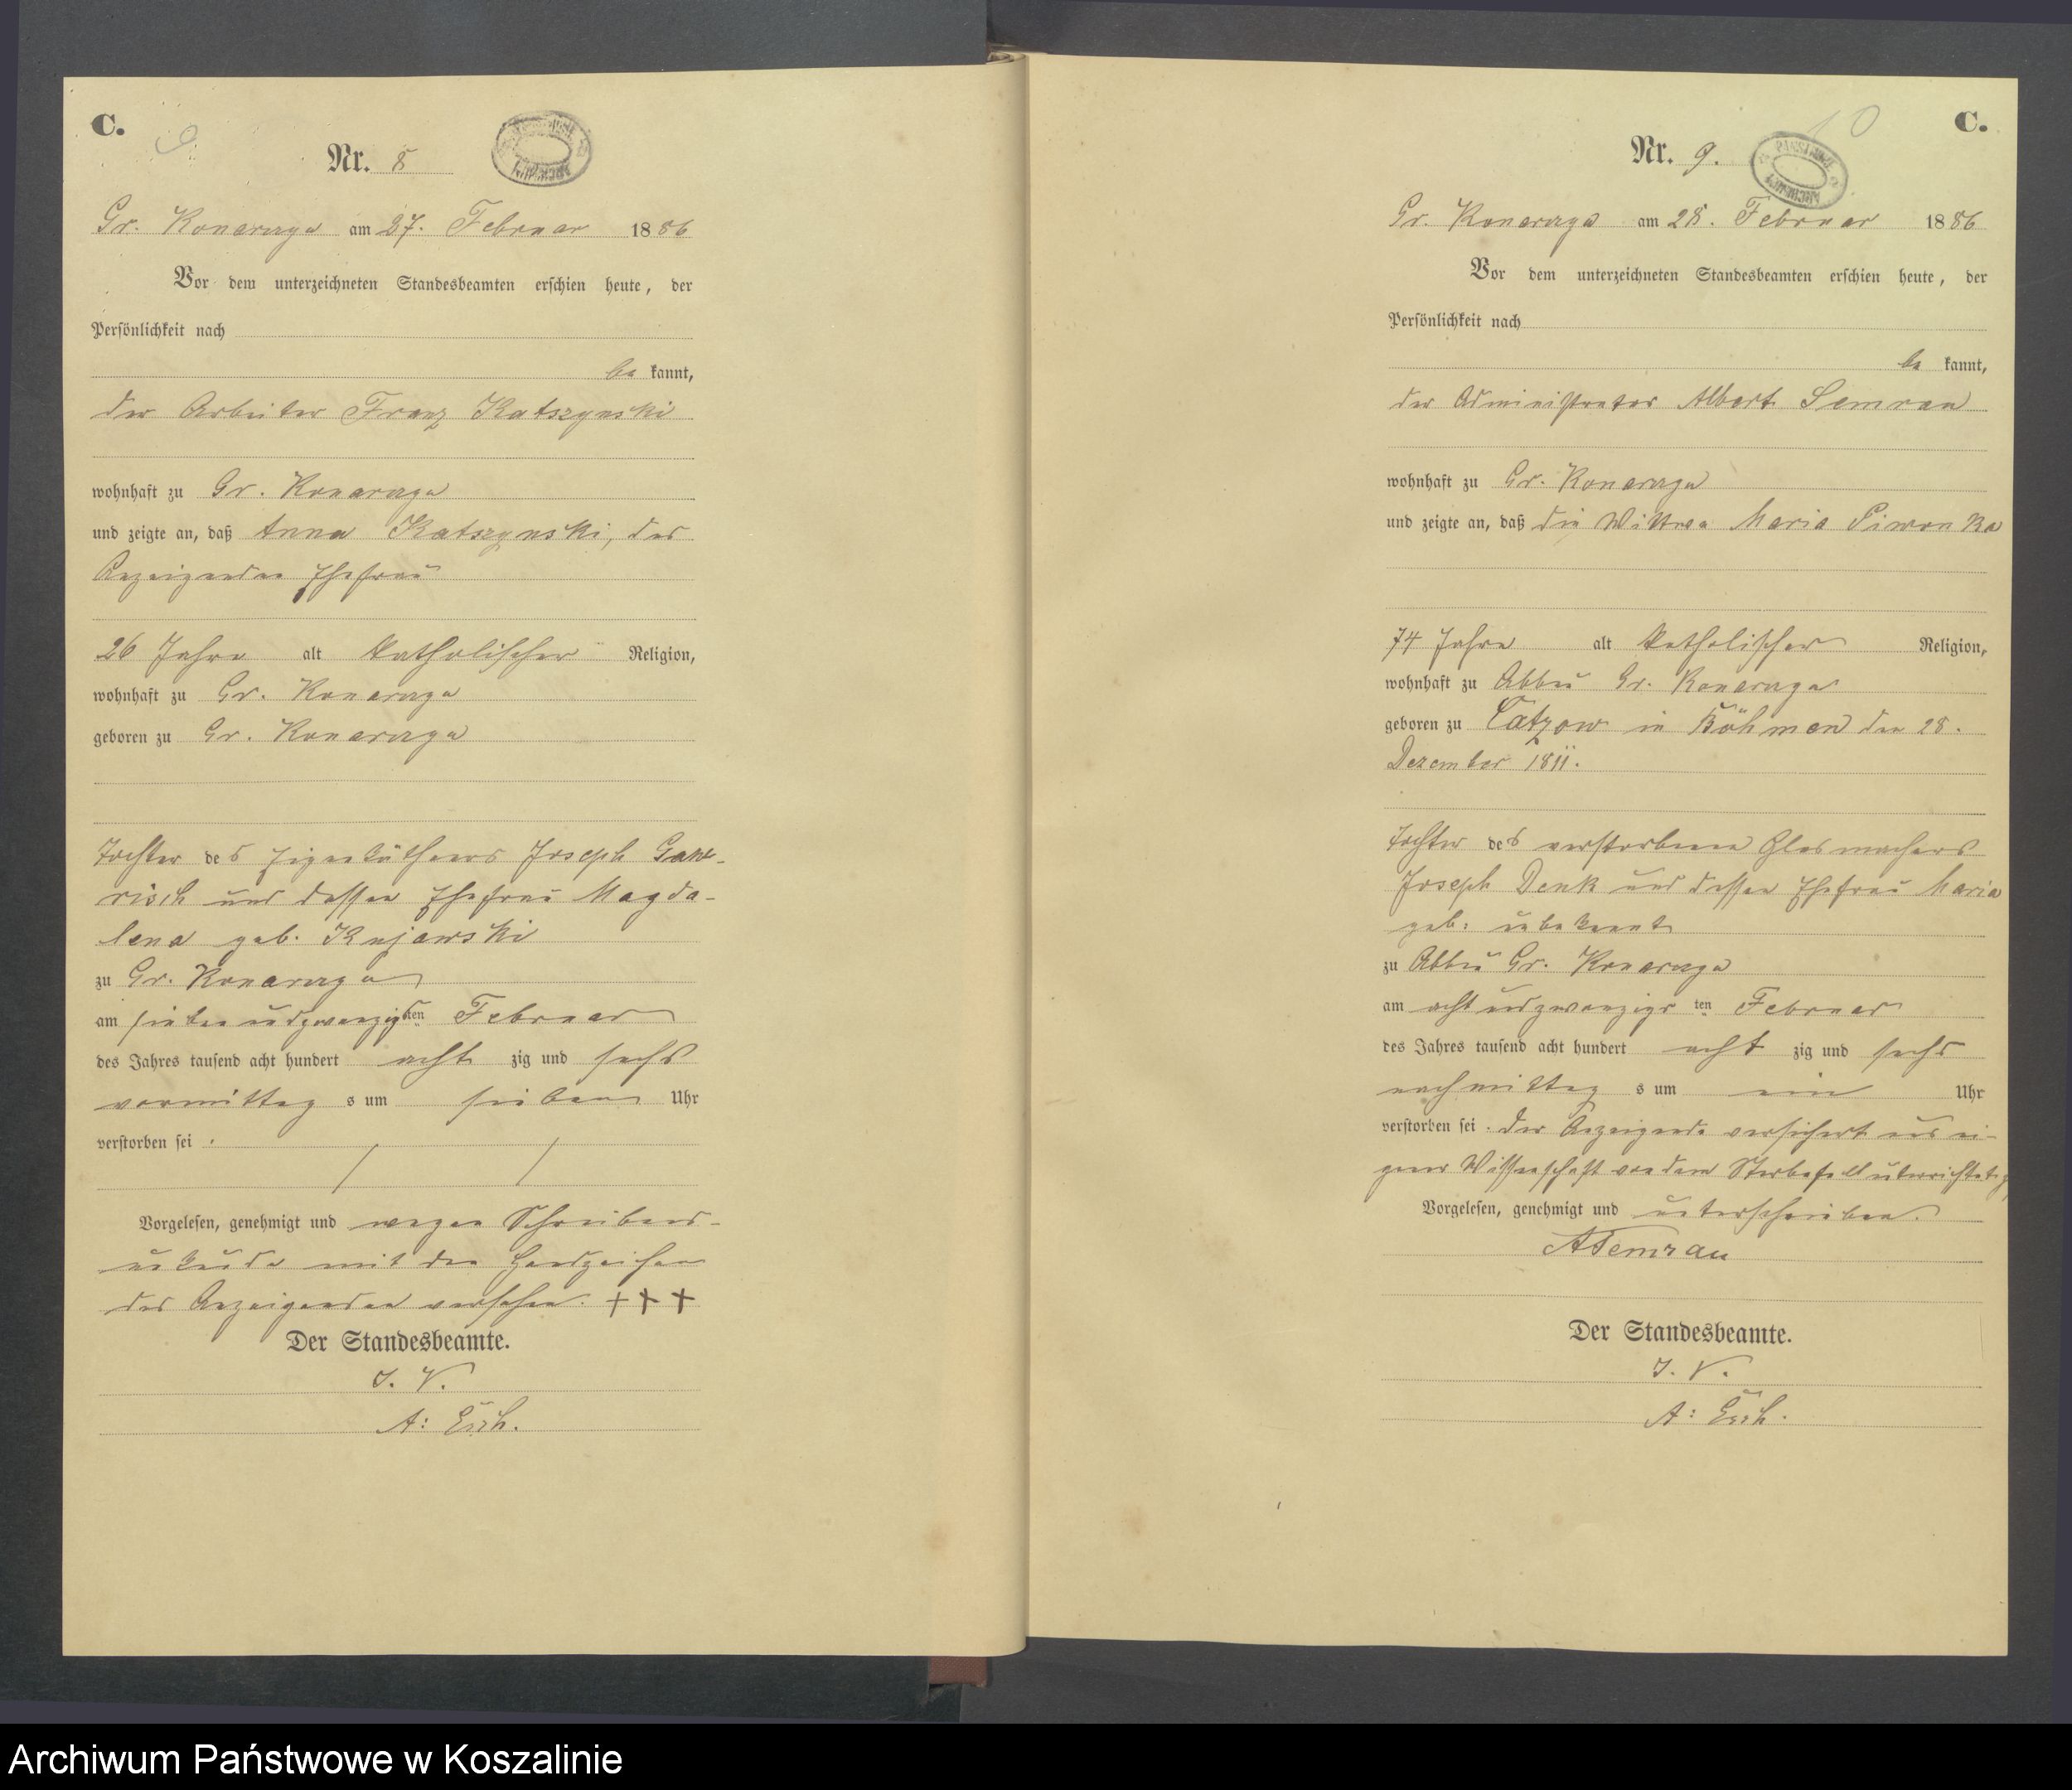 C.
Nr. 8
Gr. Konarzyn am 27. Februar 1886
Vor dem unterzeichneten Standesbeamten erschien heute, der
Persönlichkeit nach
be kannt,
der Arbeiter Franz Katszynski
wohnhaft zu Gr. Konarzyn
und zeigte an, daß Anna Katszynski, des
Anzeigenden Ehefrau
26 Jahre alt katholischer Religion,
wohnhaft zu Gr. Konarzyn
geboren zu Gr. Konarzyn
Tochter des Eigenkäthners Joseph
und dessen Ehefrau Magda-
lena geb. Kujawski
zu Gr. Konarzyn
am siebenundzwanzigsten Februar
des Jahres tausend acht hundert acht zig und sechs
vormittag s um sieben Uhr
verstorben sei.
Vorgelesen, genehmigt und wegen Schreibens-
unkunde mit den Handzeichen
des Anzeigenden versehen. +++
Der Standesbeamte.
I. V.
A:
C.
Nr. 9.
Gr. Konarzyn am 28. Februar 1886
Vor dem unterzeichneten Standesbeamten erschien heute, der
Persönlichkeit nach
be kannt,
der Administrator Albert Semrau
wohnhaft zu Gr. Konarzyn
und zeigte an, daß die Wittwe Maria Piwonka
74 Jahre alt katholischer Religion,
wohnhaft zu Abbau Gr. Konarzyn
geboren zu Catzow in Böhmen den 28.
Dezember 1811.
Tochter des verstorbenen Glasmachers
Joseph Denk und dessen Ehefrau Maria
geb. unbekannt
zu Abbau Gr. Konarzyn
am achtundzwanzigs ten Februar
des Jahres tausend acht hundert acht zig und sechs
nachmittag s um ein Uhr
verstorben sei. Der Anzeigende versichert aus ei-
gener Wissenschaft von dem Sterbefall unterrichtet
Vorgelesen, genehmigt und unterschrieben.
ASemrau
Der Standesbeamte.
I. V.
A:
Archiwum Państwowe w Koszalinie